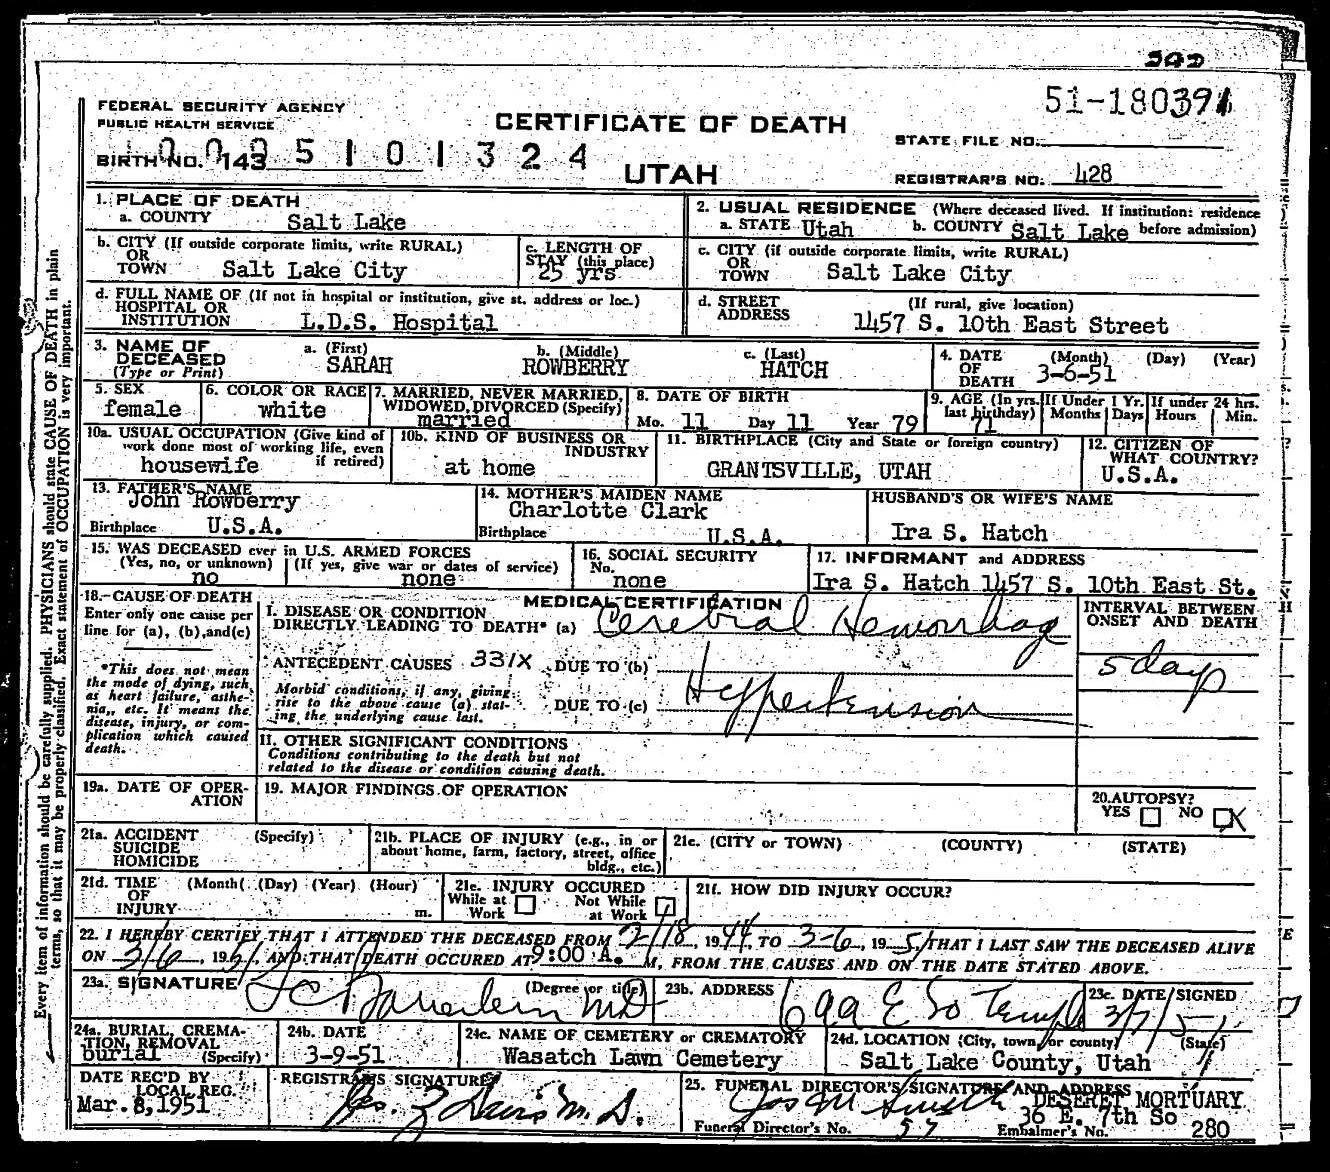 51-180391
FEDERAL SECURITY AGENCY
PUBLIC HEALTH SERVICE
CERTIFICATE OF DEATH
UTAH
STATE FILE NO.
BIRTH NO. 143 5 1 0 1 3 2 4
REGISTRAR'S NO. 428
1. PLACE OF DEATH
a. COUNTY Salt Lake
2. USUAL RESIDENCE (Where deceased lived. If institution: residence
a. STATE Utah b. COUNTY Salt Lake before admission)
b. CITY (If outside corporate limits, write RURAL)
OR
TOWN Salt Lake City
c. LENGTH OF
STAY (this place)
25 yrs
c. CITY (if outside corporate limits, write RURAL)
OR
TOWN Salt Lake City
d. FULL NAME OF (If not in hospital or institution, give st. address or loc.)
HOSPITAL OR
INSTITUTION L.D.S. Hospital
d. STREET (If rural, give location)
ADDRESS
1457 S. 10th East Street
3. NAME OF
DECEASED
(Type or Print)
a. (First)
SARAH
b. (Middle)
ROWBERRY
c. (Last)
HATCH
4. DATE (Month) (Day) (Year)
OF
DEATH 3-6-51
5. SEX
female
6. COLOR OR RACE
white
7. MARRIED, NEVER MARRIED,
WIDOWED, DIVORCED (Specify)
married
8. DATE OF BIRTH
Mo. 11 Day 11 Year 79
9. AGE (In yrs. If Under 1 Yr. If under 24 hrs.
last birthday) Months Days Hours Min.
71
10a. USUAL OCCUPATION (Give kind of
work done most of working life, even
if retired)
housewife
10b. KIND OF BUSINESS OR
INDUSTRY
at home
11. BIRTHPLACE (City and State or foreign country)
GRANTSVILLE, UTAH
12. CITIZEN OF
WHAT COUNTRY?
U.S.A.
13. FATHER'S NAME
John Rowberry
Birthplace U.S.A.
14. MOTHER'S MAIDEN NAME
Charlotte Clark
Birthplace U.S.A.
HUSBAND'S OR WIFE'S NAME
Ira S. Hatch
15. WAS DECEASED ever in U.S. ARMED FORCES
(Yes, no, or unknown) (If yes, give war or dates of service)
no none
16. SOCIAL SECURITY
No.
none
17. INFORMANT and ADDRESS
Ira S. Hatch 1457 S. 10th East St.
18. CAUSE OF DEATH
Enter only one cause per
line for (a), (b), and (c)
*This does not mean
the mode of dying, such
as heart failure, asthe-
nia,, etc. It means the
disease, injury, or com-
plication which caused
death.
MEDICAL CERTIFICATION
I. DISEASE OR CONDITION
DIRECTLY LEADING TO DEATH* (a) Cerebral Hemorrhage
ANTECEDENT CAUSES 331X DUE TO (b)
Morbid conditions, if any, giving
rise to the above cause (a) stat-
ing the underlying cause last.
DUE TO (c) Hypertension
INTERVAL BETWEEN
ONSET AND DEATH
5 days
II. OTHER SIGNIFICANT CONDITIONS
Conditions contributing to the death but not
related to the disease or condition causing death.
19a. DATE OF OPER-
ATION
19. MAJOR FINDINGS OF OPERATION
20. AUTOPSY?
YES NO X
21a. ACCIDENT (Specify)
SUICIDE
HOMICIDE
21b. PLACE OF INJURY (e.g., in or
about home, farm, factory, street, office
bldg., etc.)
21c. (CITY or TOWN) (COUNTY) (STATE)
21d. TIME (Month) (Day) (Year) (Hour)
OF
INJURY m.
21e. INJURY OCCURED
While at Not While
Work at Work
21f. HOW DID INJURY OCCUR?
22. I HEREBY CERTIFY THAT I ATTENDED THE DECEASED FROM 2/18, 1944, TO 3-6, 1951, THAT I LAST SAW THE DECEASED ALIVE
ON 3/6, 1951, AND THAT DEATH OCCURED AT 9:00 A. M, FROM THE CAUSES AND ON THE DATE STATED ABOVE.
23a. SIGNATURE (Degree or title) MD
23b. ADDRESS 699 E So Temple
23c. DATE SIGNED
3/7/51
24a. BURIAL, CREMA-
TION, REMOVAL
burial (Specify)
24b. DATE
3-9-51
24c. NAME OF CEMETERY or CREMATORY
Wasatch Lawn Cemetery
24d. LOCATION (City, town, or county) (State)
Salt Lake County, Utah
DATE REC'D BY
LOCAL REG.
Mar. 8, 1951
REGISTRAR'S SIGNATURE
M. D.
25. FUNERAL DIRECTOR'S SIGNATURE AND ADDRESS
DESERET MORTUARY
36 E. 7th So
Funeral Director's No. 57 Embalmer's No. 280
Every item of information should be carefully supplied. PHYSICIANS should state CAUSE OF DEATH in plain
terms, so that it may be properly classified. Exact statement of OCCUPATION is very important.